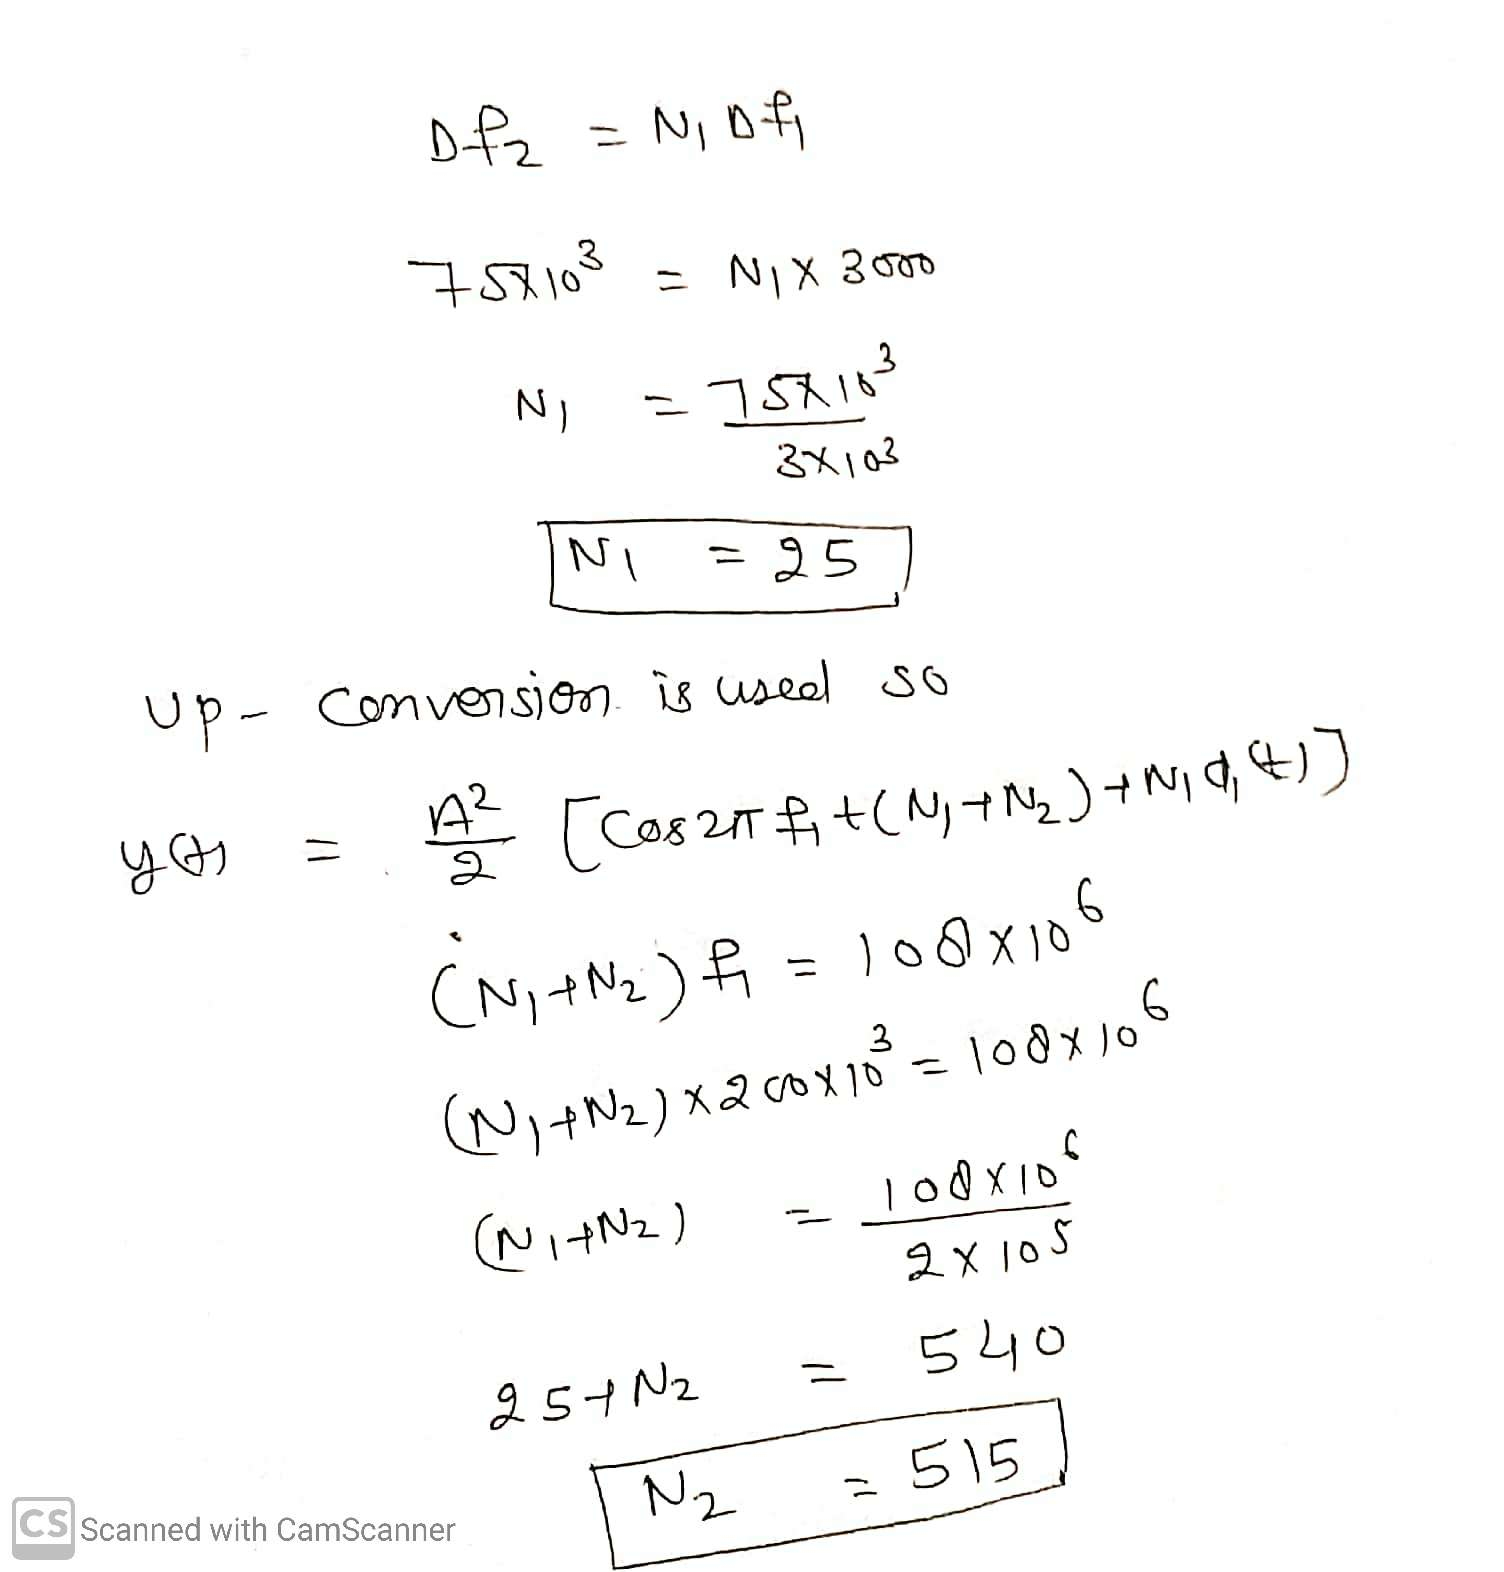 Df₂ = N₁ Df₁
75×10³ = N₁ × 3000
N₁ = 75×10³
3×10³
N₁ = 25
Up - Conversion is used so
y(t) = A²/2 [Cos2π f₁ t(N₁+N₂)+N₁ φ₁(t)]
(N₁+N₂) f₁ = 108×10⁶
(N₁+N₂) × 200×10³ = 108×10⁶
(N₁+N₂) = 108×10⁶
2×10⁵
25+N₂ = 540
N₂ = 515
CS Scanned with CamScanner